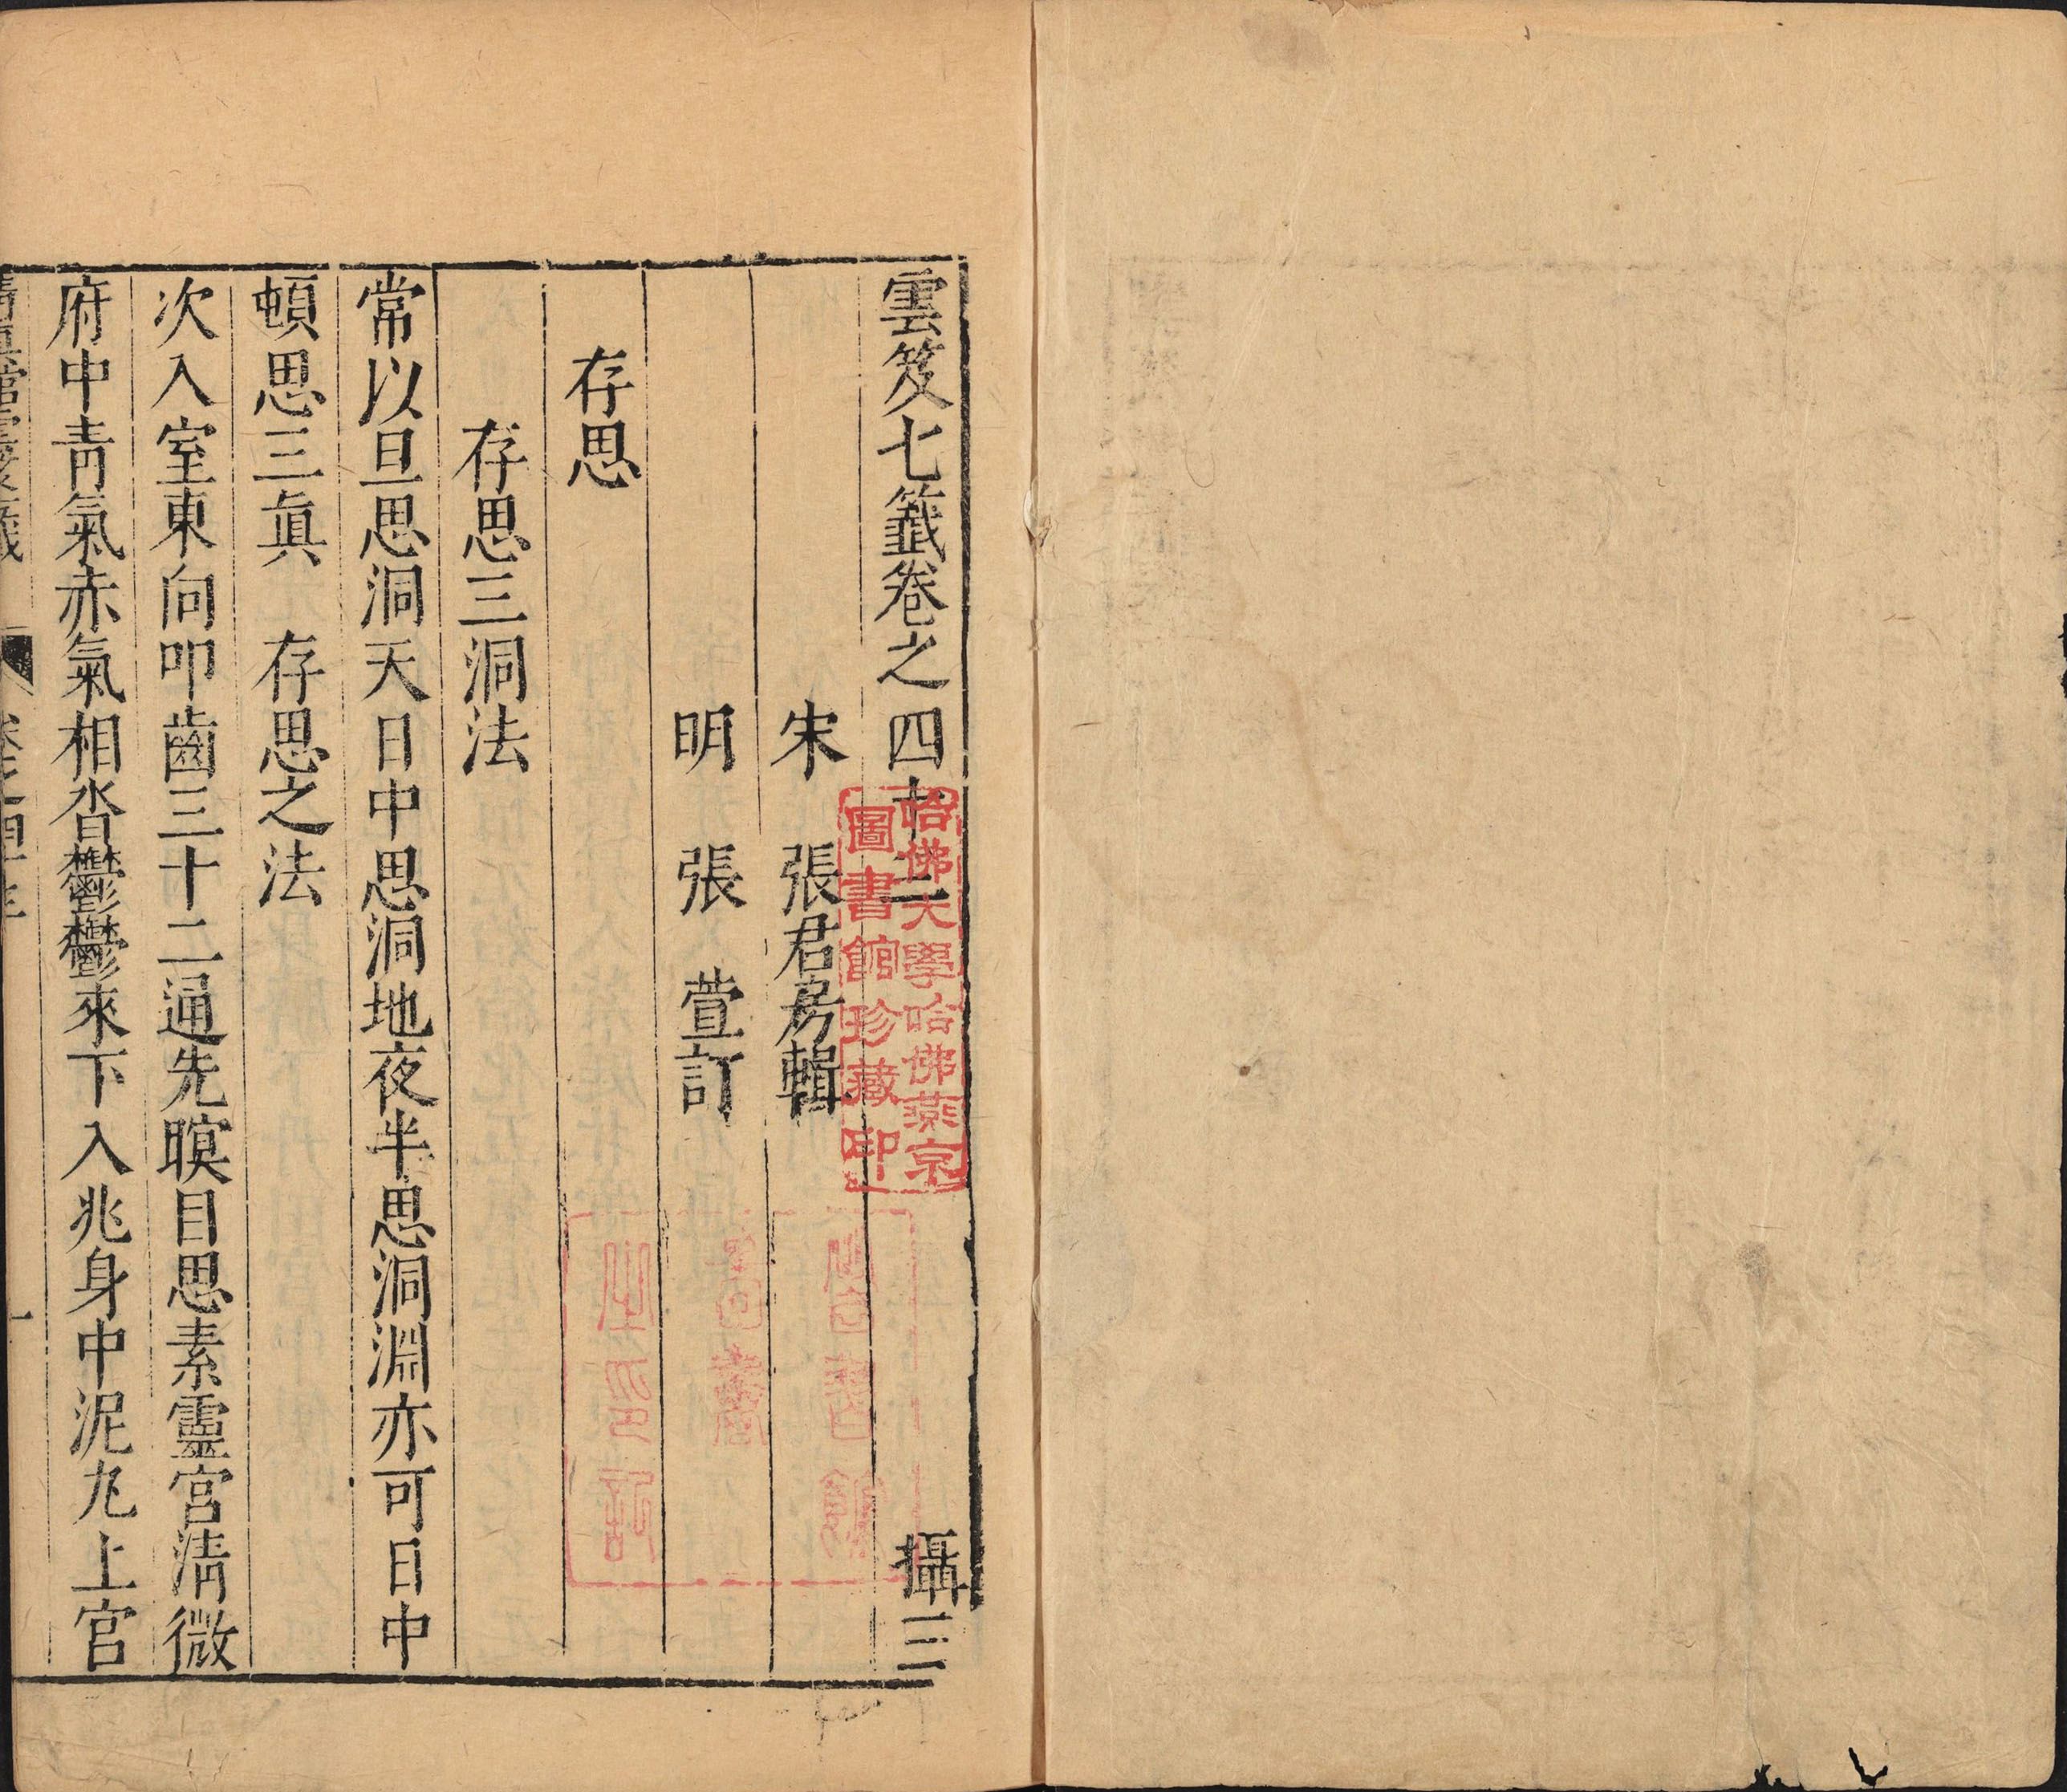 雲笈七籤卷之四十三　攝三
宋　張君房輯
明　張　萱訂
存思
存思三洞法
常以旦思洞天日中思洞地夜半思洞淵亦可日中
頓思三眞　存思之法
次入室東向叩齒三十二通先瞑目思素靈宮清微
府中青氣赤氣相沓鬱鬱來下入兆身中泥丸上宮
哈佛大學哈佛燕京
圖書館珍藏印